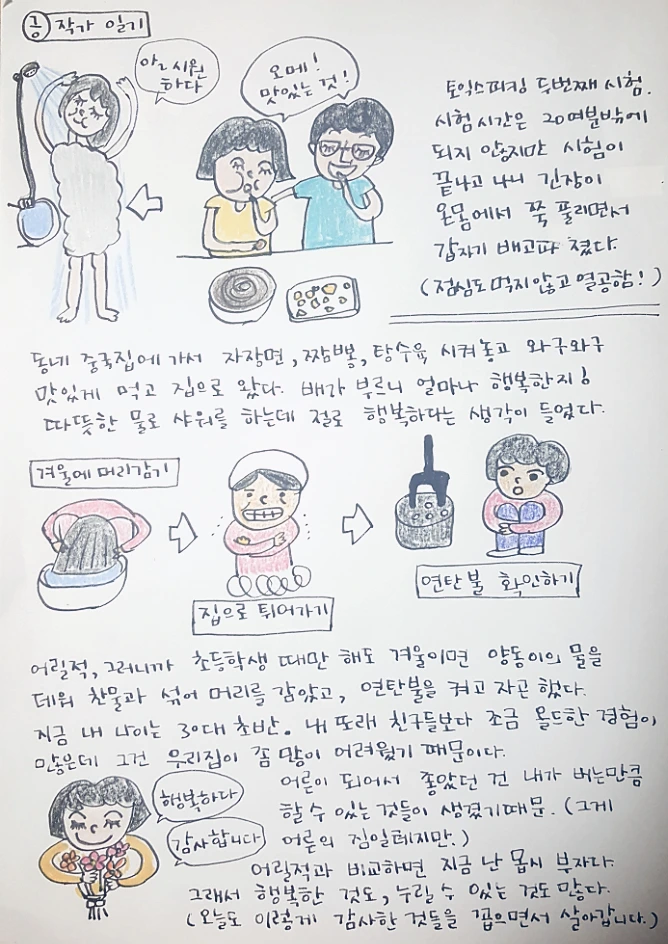 긍 작가 일기
아~ 시원
하다
오메!
맛있는 것!
토익스피킹 두번째 시험.
시험 시간은 20여분밖에
되지 않지만 시험이
끝나고 나니 긴장이
온몸에서 쭉 풀리면서
갑자기 배고파 졌다.
(점심도 먹지 않고 열공함!)
동네 중국집에 가서 자장면, 짬뽕, 탕수육 시켜놓고 와구와구
맛있게 먹고 집으로 왔다. 배가 부르니 얼마나 행복한지!
따뜻한 물로 샤워를 하는데 절로 행복하다는 생각이 들었다.
겨울에 머리감기
집으로 튀어가기
연탄 불 확인하기
어릴적, 그러니까 초등학생 때만 해도 겨울이면 양동이의 물을
데워 찬물과 섞어 머리를 감았고, 연탄불을 켜고 자곤 했다.
지금 내 나이는 30대 초반. 내 또래 친구들보다 조금 올드한 경험이
많은데 그건 우리집이 좀 많이 어려웠기 때문이다.
행복하다
감사합니다
어른이 되어서 좋았던 건 내가 버는만큼
할 수 있는 것들이 생겼기때문. (그게
어른의 짐일테지만.)
어릴적과 비교하면 지금 난 몹시 부자다.
그래서 행복한 것도, 누릴 수 있는 것도 많다.
(오늘도 이렇게 감사한 것들을 꼽으면서 살아갑니다.)